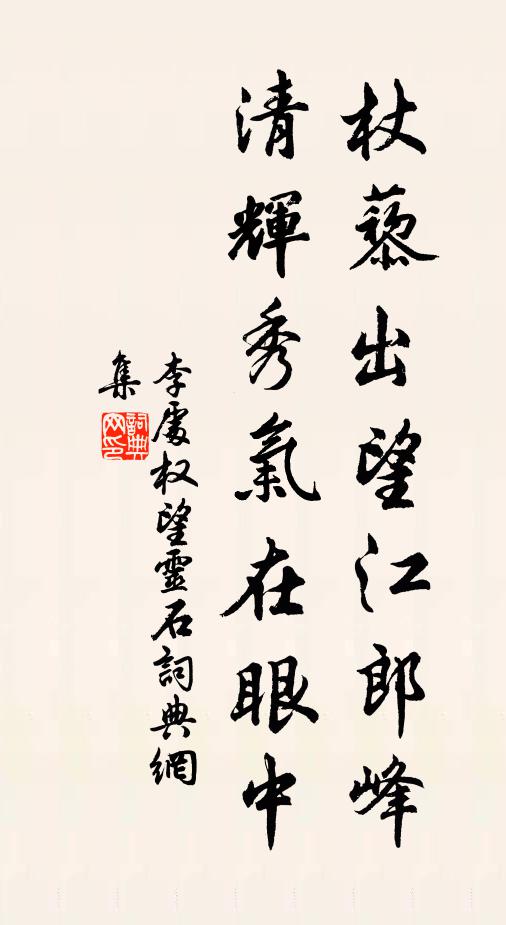 杖藜出望江郎峰
清輝秀氣在眼中
李處权望靈石詞典網
集
詞典網印